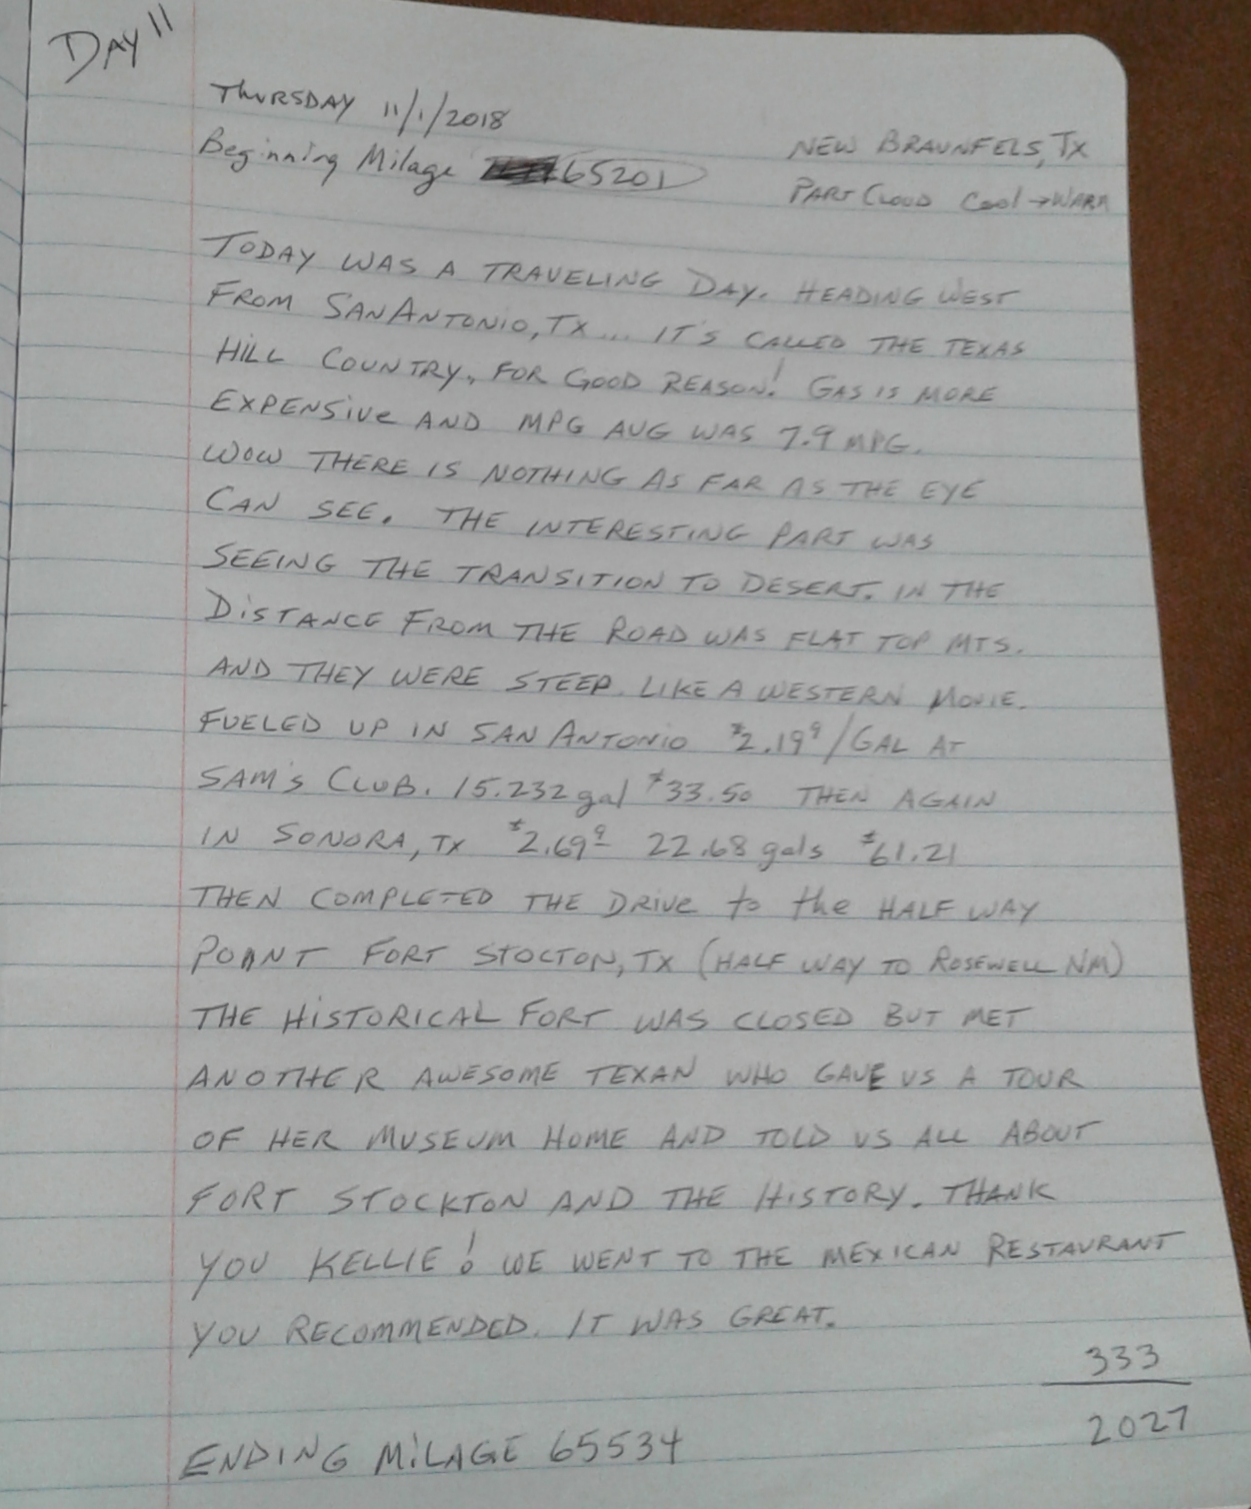 DAY 11
THURSDAY 11/1/2018
Beginning Milage 65201
NEW BRAUNFELS, TX
PART CLOUD Cool → WARM
TODAY WAS A TRAVELING DAY. HEADING WEST
FROM SAN ANTONIO, TX... IT'S CALLED THE TEXAS
HILL COUNTRY, FOR GOOD REASON! GAS IS MORE
EXPENSIVE AND MPG AUG WAS 7.9 MPG.
WOW THERE IS NOTHING AS FAR AS THE EYE
CAN SEE. THE INTERESTING PART WAS
SEEING THE TRANSITION TO DESERT. IN THE
DISTANCE FROM THE ROAD WAS FLAT TOP MTS.
AND THEY WERE STEEP. LIKE A WESTERN MOVIE.
FUELED UP IN SAN ANTONIO $2.19⁹/GAL AT
SAM'S CLUB. 15.232 gal $33.50 THEN AGAIN
IN SONORA, TX $2.69⁹ 22.68 gals $61.21
THEN COMPLETED THE DRIVE to the HALF WAY
POINT FORT STOCTON, TX (HALF WAY TO ROSEWELL NM)
THE HISTORICAL FORT WAS CLOSED BUT MET
ANOTHER AWESOME TEXAN WHO GAVE US A TOUR
OF HER MUSEUM HOME AND TOLD US ALL ABOUT
FORT STOCKTON AND THE HISTORY. THANK
YOU KELLIE! WE WENT TO THE MEXICAN RESTAURANT
YOU RECOMMENDED. IT WAS GREAT.
333
2027
ENDING MILAGE 65534